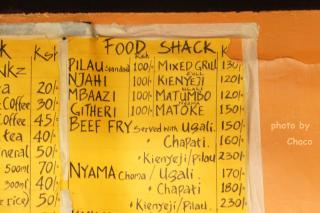 K Ksh
NKz
ea 20/-
Coffee 30/-
Coffee 45/-
tea 40/-
neral 50/-
500ml 50/-
300ml 40/-
e rice) 50/-
FOOD SHACK
Ksh
PILAU Standard 100/- MIXED GRILL 130/-
NJAHI 100/- KIENYEJI 120/-
MBAAZI 100/- MATUMBO 120/-
GITHERI 100/- MATOKE 150/-
BEEF FRY Served with Ugali. 150/-
• Chapati. 160/-
• Kienyeji/Pilau 230/-
NYAMA Choma / Ugali. 170/-
• Chapati 180/-
• Kienyeji/Pilau. 230/-
photo by
Choco